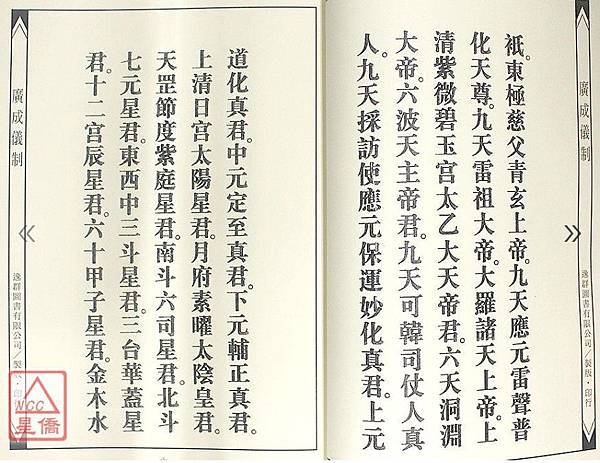 祇。東極慈父青玄上帝。九天應元雷聲普
化天尊。九天雷祖大帝。大羅諸天上帝。上
清紫微碧玉宮太乙大天帝君。六天洞淵
大帝。六波天主帝君。九天可韓司仗人真
人。九天採訪使應元保運妙化真君。上元
廣成儀制
逸群圖書有限公司/製版・印行
道化真君。中元定至真君。下元輔正真君。
上清日宮太陽星君。月府素曜太陰皇君。
天罡節度紫庭星君。南斗六司星君。北斗
七元星君。東西中三斗星君。三台華蓋星
君。十二宮辰星君。六十甲子星君。金木水
廣成儀制
逸群圖書有限公司/製版・印行
WCC
星僑